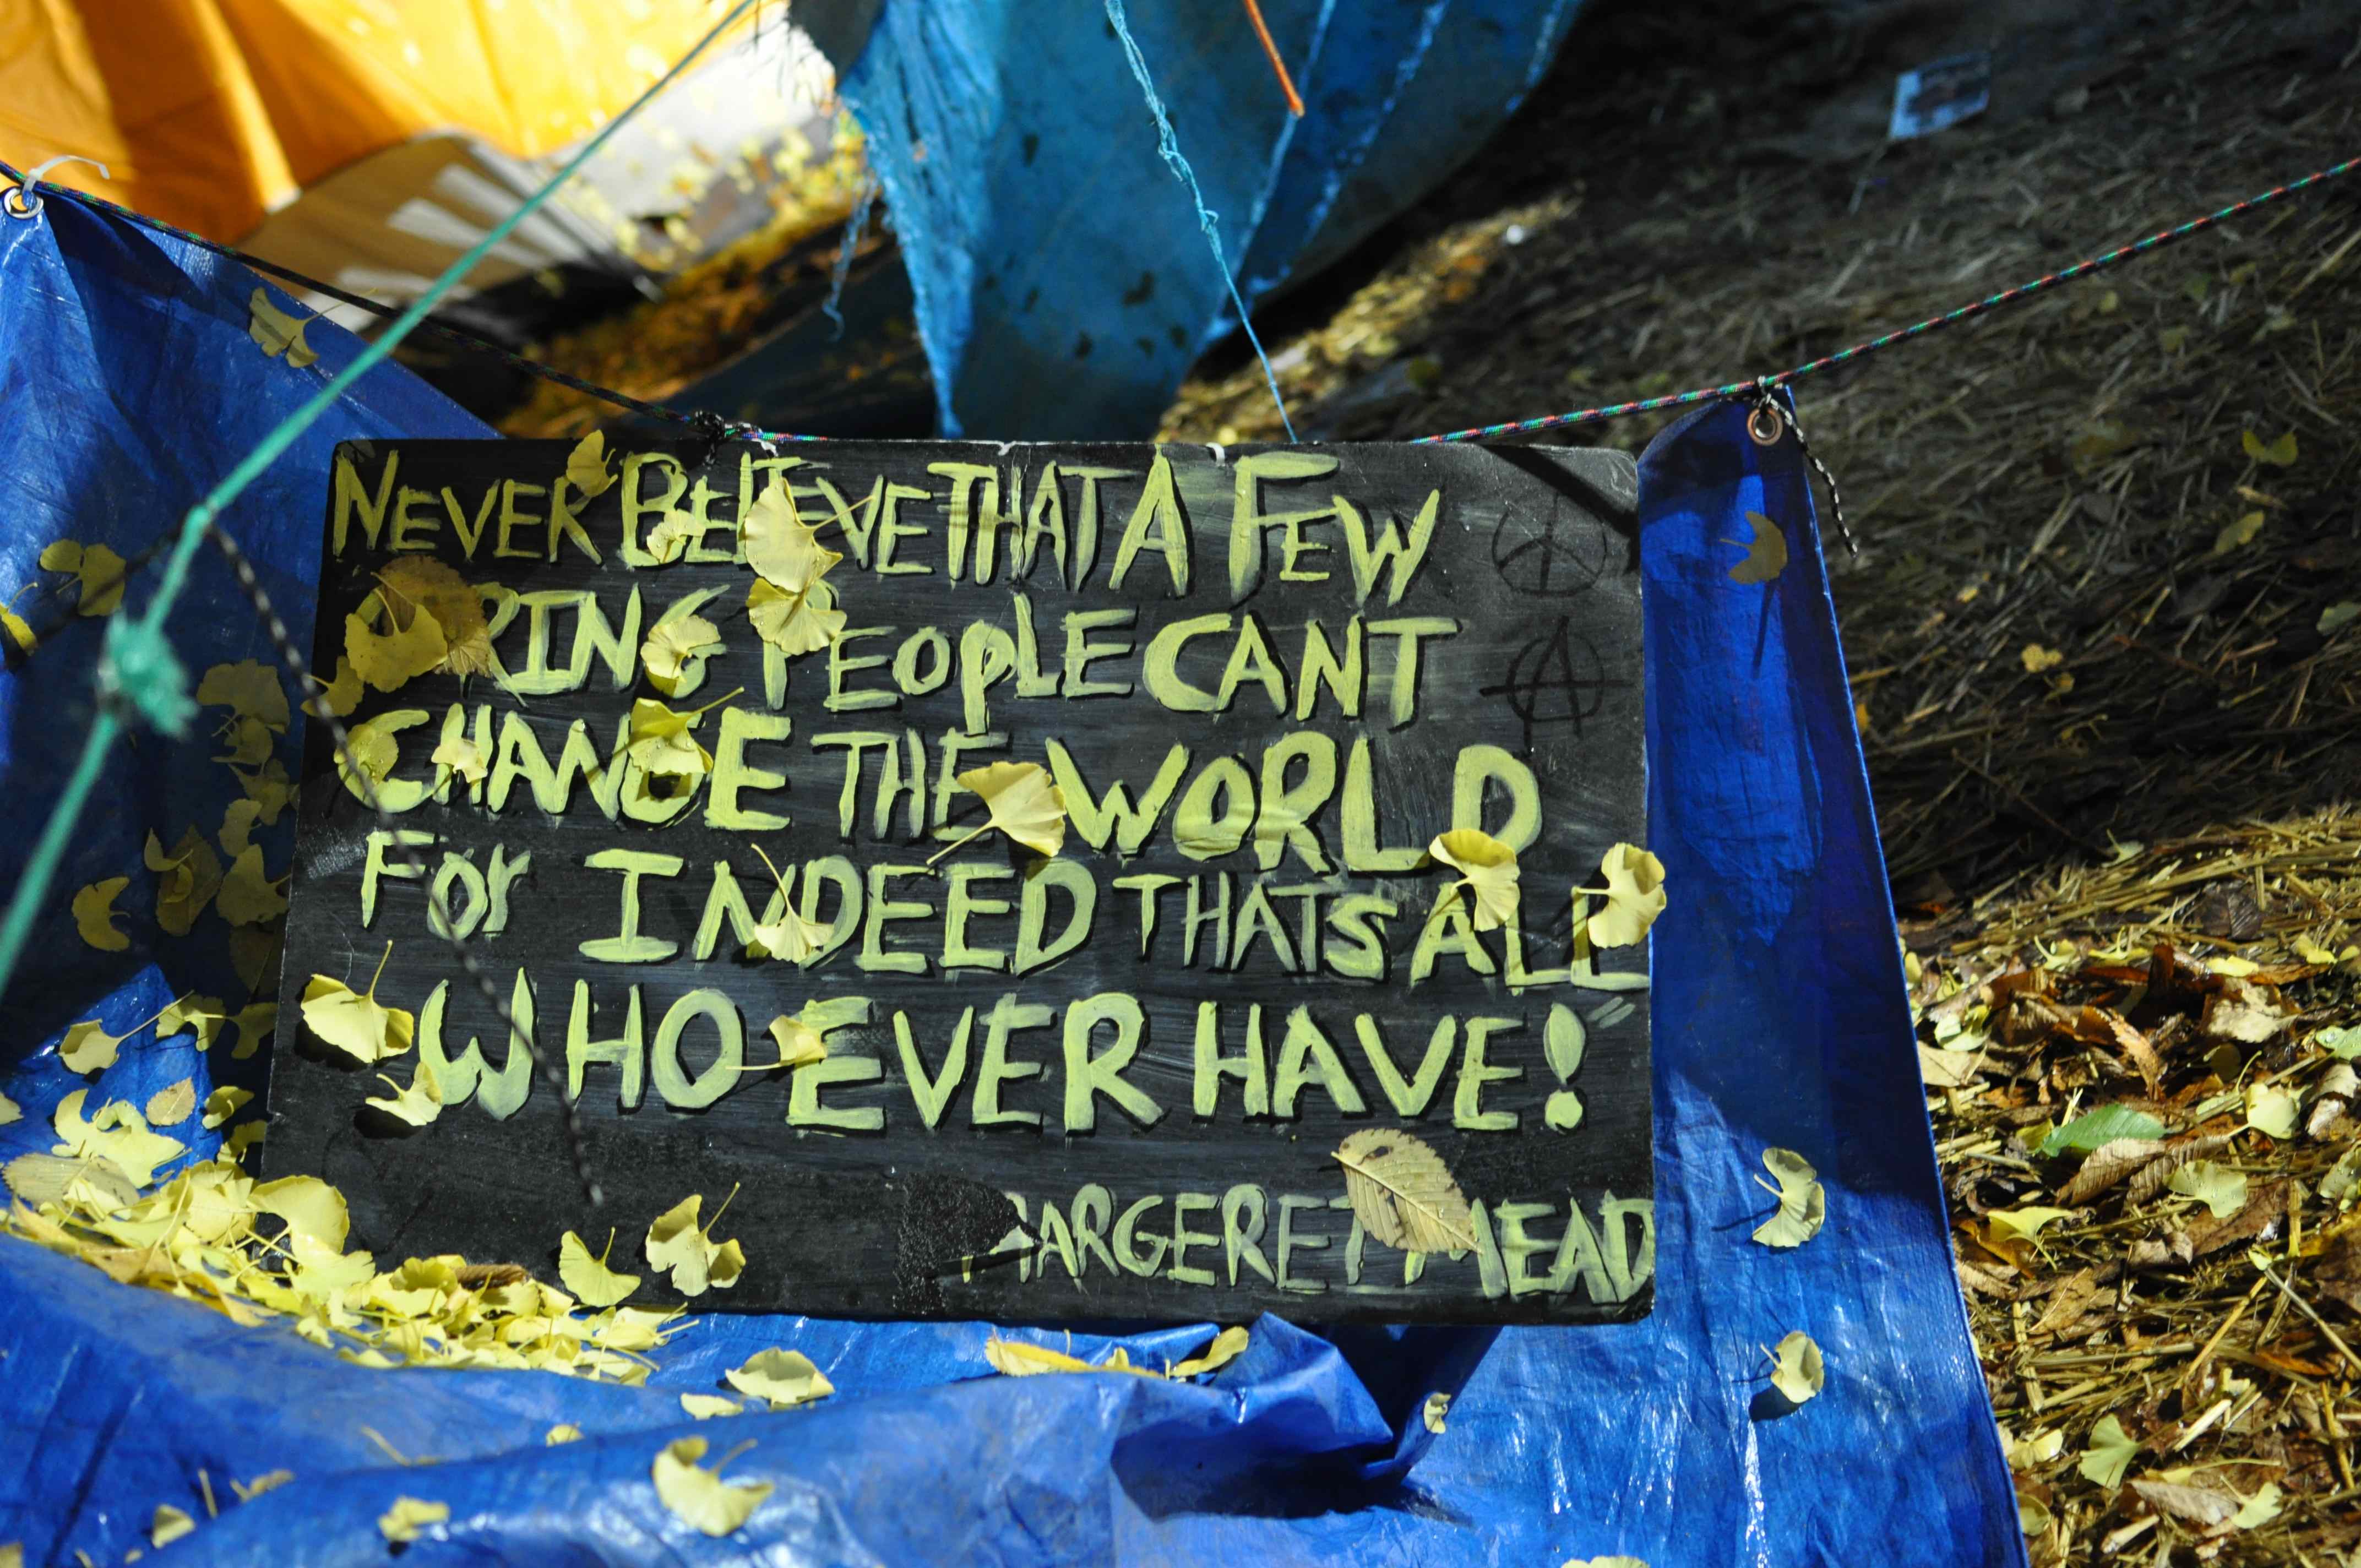 NEVER BELIEVE THAT A FEW
CARING PEOPLE CANT
CHANGE THE WORLD
FOR INDEED THATS ALL
WHO EVER HAVE!
MARGERET MEAD